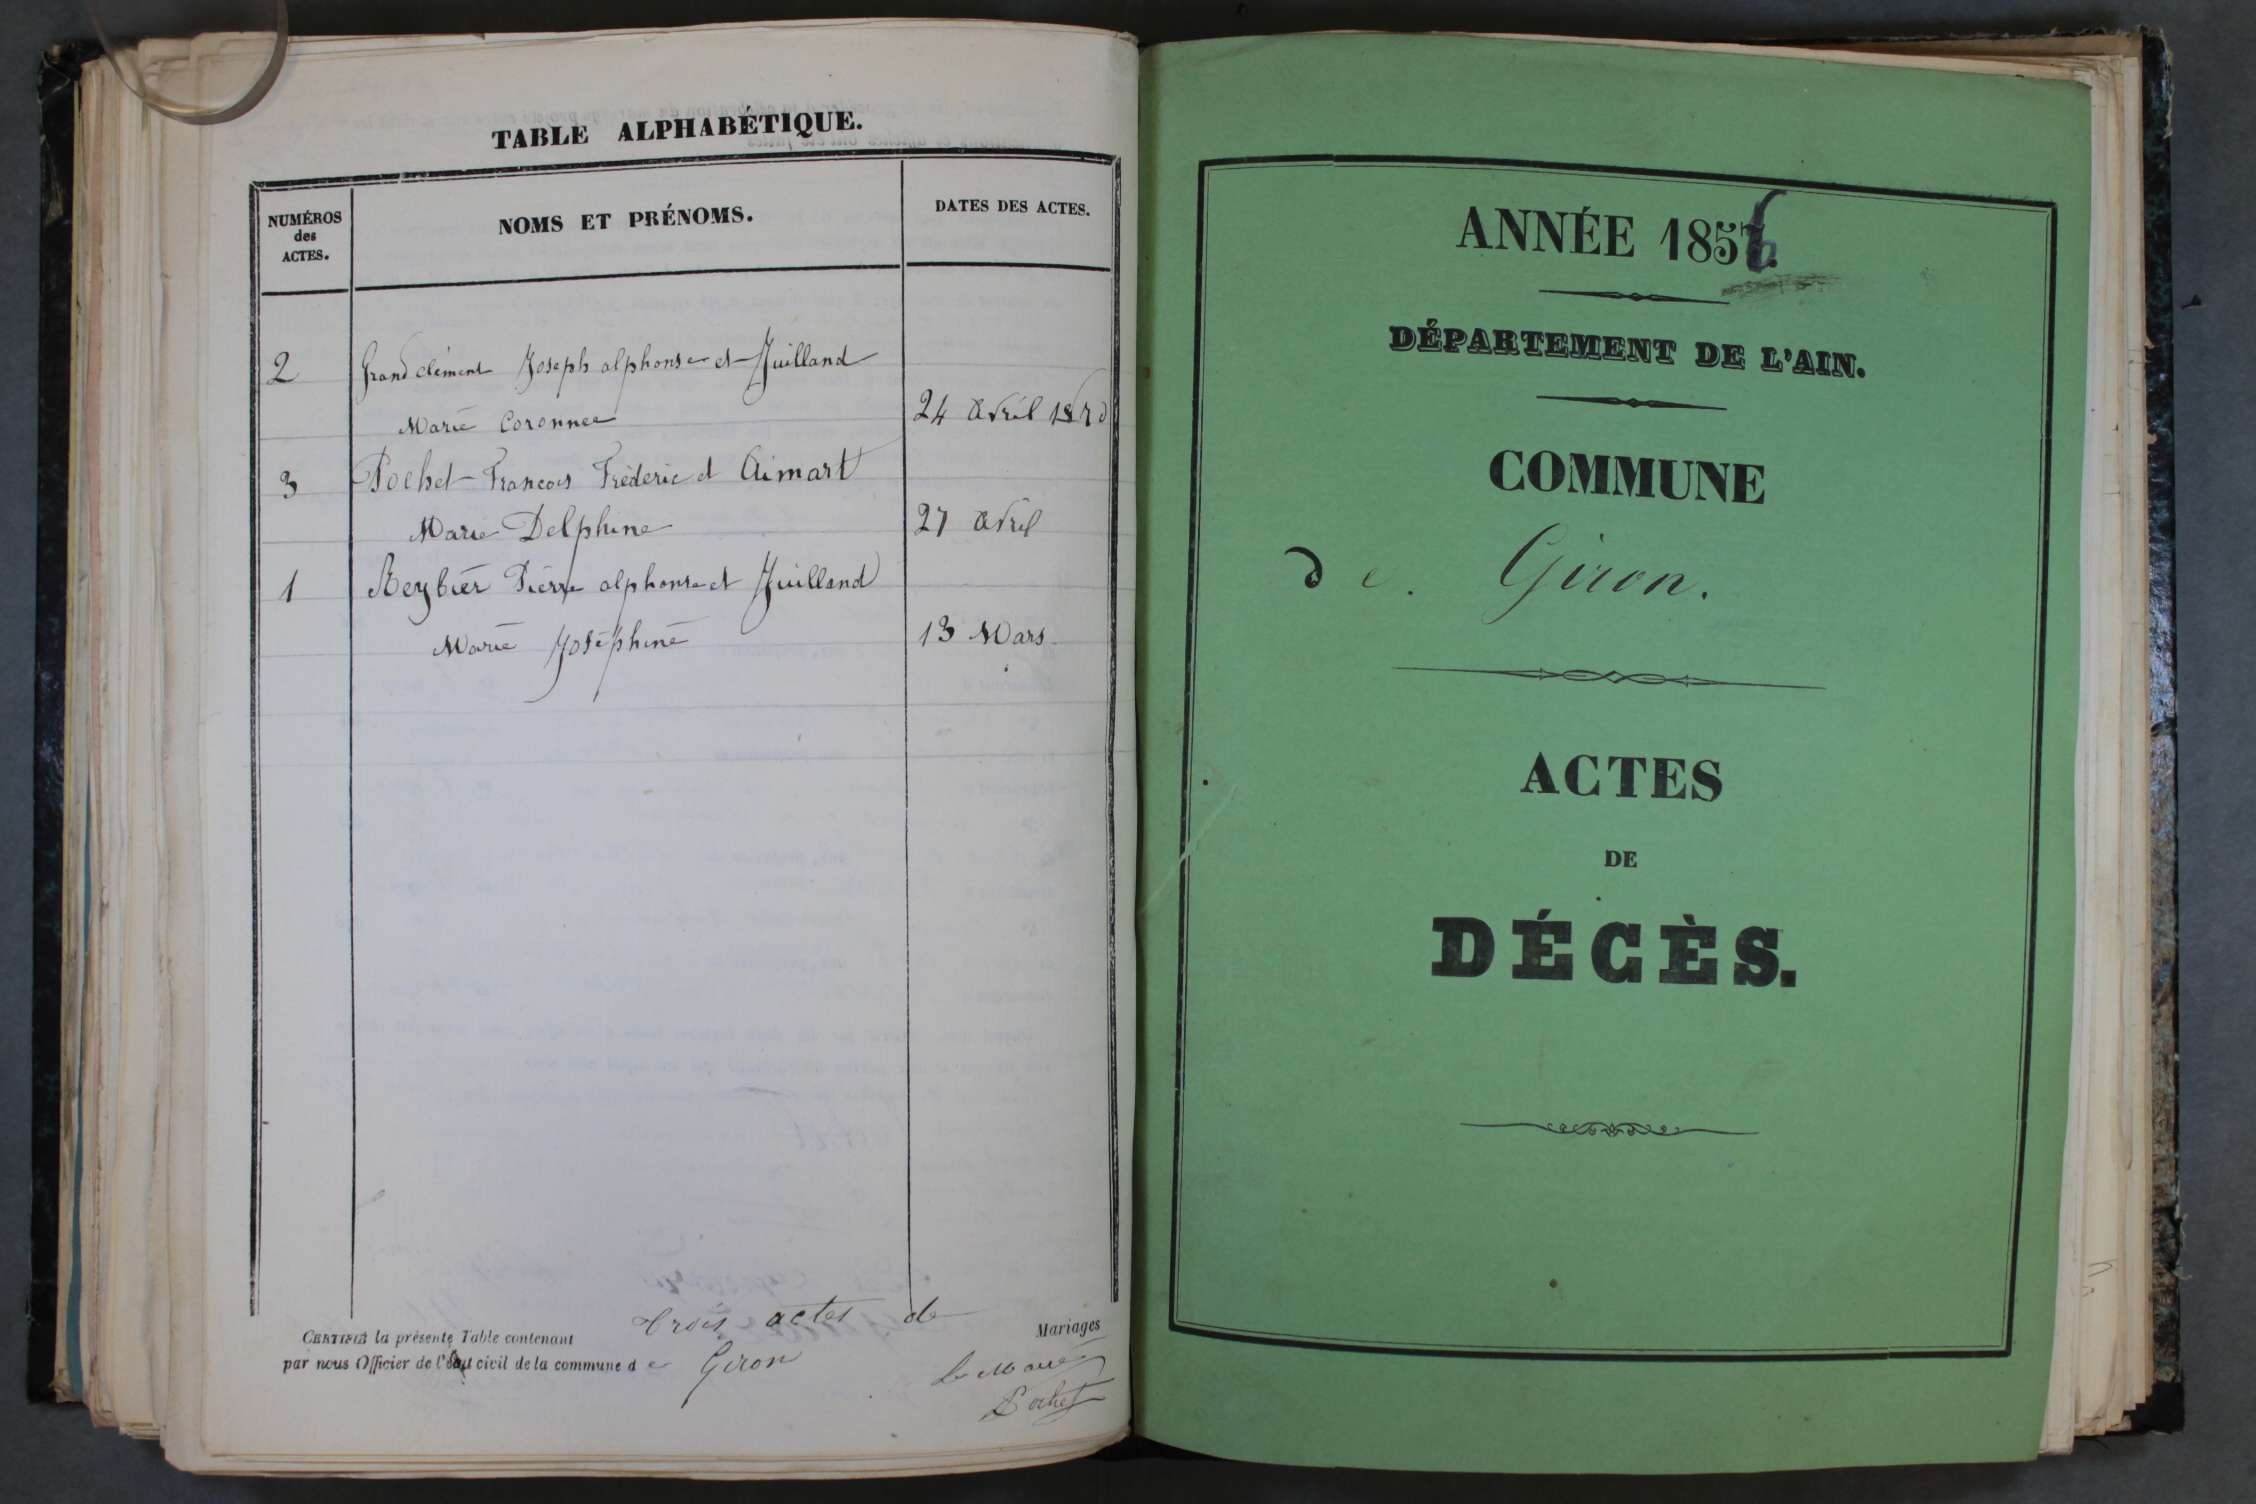 TABLE ALPHABÉTIQUE.
NUMÉROS
des
ACTES.
NOMS ET PRÉNOMS.
DATES DES ACTES.
2 Grand clément Joseph alphonse et Juilland
Marie Coronnee 24 avril 1870
3 Pochet Francois Fréderic et Aimart
Marie Delphine 27 avril
1 Reybier Pierre alphonse et Juilland
Marie Joséphine 13 Mars
CERTIFIÉ la présente Table contenant trois actes de Mariages
par nous Officier de l'état civil de la commune de Giron
Le Maire
Pochet
ANNÉE 185
DÉPARTEMENT DE L'AIN.
COMMUNE
de Giron.
ACTES
DE
DÉCÈS.